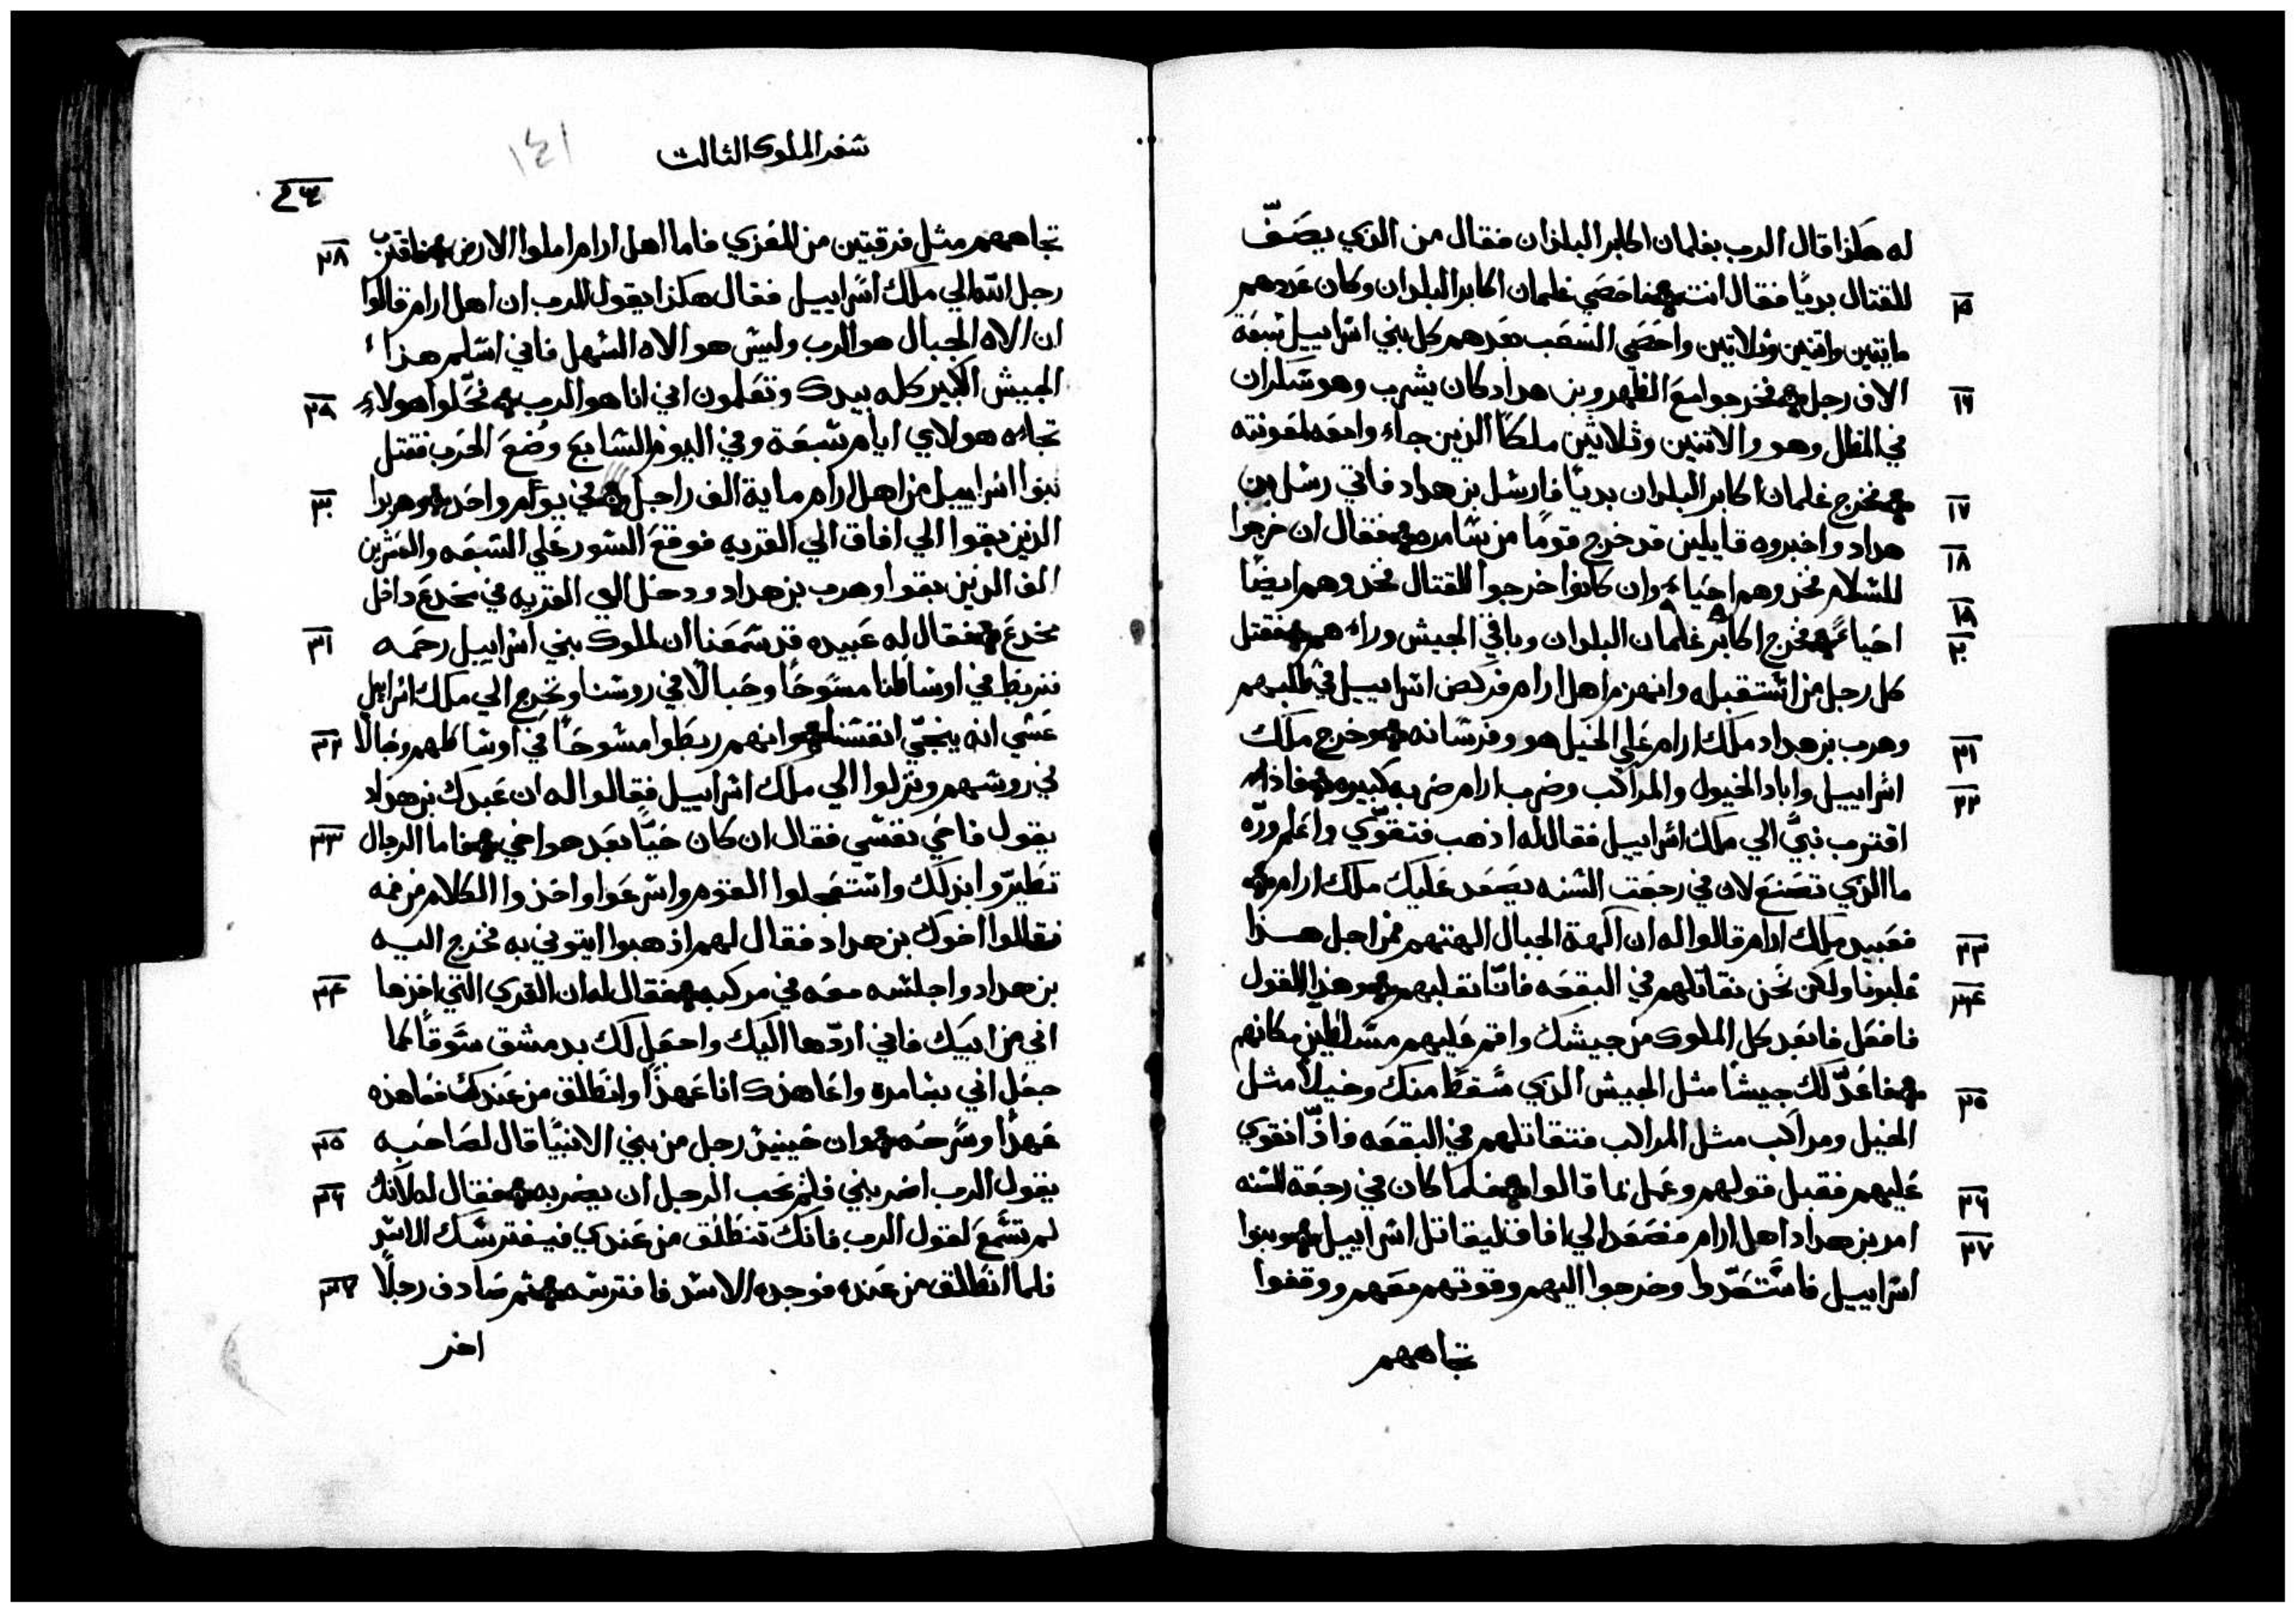 له هكذا قال الرب بغلمان اكابر البلدان فقال من الذي يصَفّ
للقتال بديًا فقال انت فاحصَي غلمان اكابر البلدان وكان عَددهم
١٥
مايتين واتنين وثلاتين واحَصَي الشعَب بعَدهم كل بني اسَراييل سَبعَة
الاف رجل فخرجوا معَ الظهر وبن هداد كان يشرب وهو سَكران
١٦
في المظل وهو والاتنين وثلاثين ملكًا الذين جاءَوا معَه لمعَونته
فخرج غلمان اكابر البلدان بديًا فارسَل بن هداد فاتي رسَل بن
١٧
هداد واخبروه قايلين قد خرج قومًا من سَامره فقال ان خرجوا
١٨
للسَلام فخدوهم احَياء وان كانوا خرجوا للقتال فخدوهم ايضًا
١٩
احَياءً فخرج اكابر غلمان البلدان وباقي الجيش وراءهم فقتل
٢٠
كل رجل من اسَتقبله وانهزم اهل ارام فركض اسَراييل في طلبهم
وهرب بن هداد ملك ارام عَلي الخيل هو وفرسَانه وخرج ملك
٢١
اسَراييل واباد الخيول والمراكب وضرب ارام ضربه كبيره فاذا
٢٢
اقترب نبيً الي ملك اسَراييل فقال له اذهب فتقوّي واعَلم وردّه
ما الذي تصَنعَ لان في رجعَت السَنه يصَعَد عَليك ملك ارام
فعَبيد ملك ارام قالوا له ان الهة الجبال الهتهم فمن اجل هذا
٢٣
غلبونا ولكن نحَن نقاتلهم في البقعَه فانّا نغلبهم وهذا القول
٢٤
فافعَل فابعَد كل الملوك من جيشك واقم عَليهم مسَلطين مكانهم
فاعَدّ لك جيشًا مثل الجيش الذي سَقط منك وخيلًا مثل
٢٥
الخيل ومراكب مثل المراكب فنتقاتلهم في البقعَه فاذًا نقوي
عَليهم فقبل قولهم وعَمل بما قالوا فلما كان في رجعَة السَنه
٢٦
امر بن هداد اهل ارام فصَعَد الي افاق ليقاتل اسَراييل وبنوا
٢٧
اسَراييل فاسَتعَدّوا وخرجوا اليهم وقوتهم معَهم ووقفوا
تجاههم
سَفر الملوك الثالت
١٤١
تجاههم مثل فرقتين من المعَزي فاما اهل ارام املوا الارض فاقترب
٢٨
رجل الله الي ملك اسَراييل فقال هكذا يقول الرب ان اهل ارام قالوا
ان الاه الجبال هو الرب وليس هو الاه السَهل فاني اسَلم هذا
الجيش الكبير كله بيدك وتعَلمون اني انا هو الرب فخّلوا هولاء
٢٩
تجاه هولاي ايام سَبعَة وفي اليوم السَابعَ وُضعَ الحَرب فقتل
بنوا اسَراييل من اهل ارام ماية الف راجل في يوم واحَد وهربوا
٣٠
الذين بقوا الي افاق الي القريه فوقعَ السَور علي السَبعَه والعَشرين
الف الذين بقوا وهرب بن هداد ودخل الي القريه في مخدعَ داخل
مخدعَ فقال له عَبيده قد سَمعَنا ان لملوك بني اسَراييل رحَمه
٣١
فنربط في اوسَاطنا مسَوحًا وحَبالًا في روسَنا ونخرج الي ملك اسَراييل
عَسَي انه ينجّي انفسَنا وانهم ربَطوا مسَوحًا في اوسَاطهم وحَبالًا
٣٢
في روسَهم ونزلوا الي ملك اسَراييل فقالوا له ان عَبدك بن هداد
يقول فاحَي نفسَي فقال ان كان حَيًّا بعَد هو اخي فاما الرجال
٣٣
تطَيرّوا بذلك واسَتعَجلوا القوم واسَرعَوا واخذوا الكلام من فمه
فقالوا اخوك بن هداد فقال لهم اذهبوا ايتوني به فخرج اليه
بن هداد واجلسَه معَه في مركبه فقال له ان القري التي اخذها
٣٤
ابي من ابيك فاني اردّها اليك واجعَل لك بدمشق سَوقًا كما
جعَل ابي بسَامره واعَاهدك انا عَهدًا وانطَلق من عَندك فعَاهده
عَهدًا وسَرحَه وان حَينيذٍ رجل من بني الانبيًا قال لصَاحَبه
٣٥
بقول الرب اضربني فلم يحَب الرجل ان يضربه فقال له لانك
٣٦
لم تسَمعَ لقول الرب فانك تنطَلق من عَندي فيفترسَك الاسَد
فلما انطَلق من عَنده فوجده الاسَد فافترسَه ثم صَادف رجلًا
٣٧
اخر